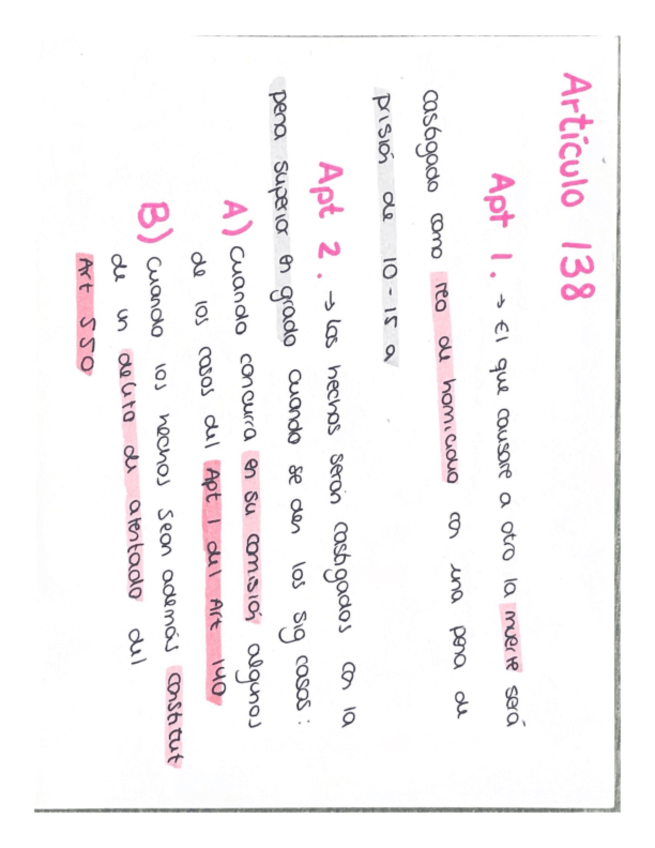 Artículo 138
Apt 1. → El que causare a otro la muerte será
castigado como reo de homicidio con una pena de
prisión de 10-15 a
Apt 2. → Los hechos serán castigados con la
pena superior en grado cuando se den los sig casos:
A) Cuando concurra en su comisión algunos
de los casos del Apt 1 del Art 140
B) Cuando los hechos sean además constitut
de un delito de atentado del
Art 550